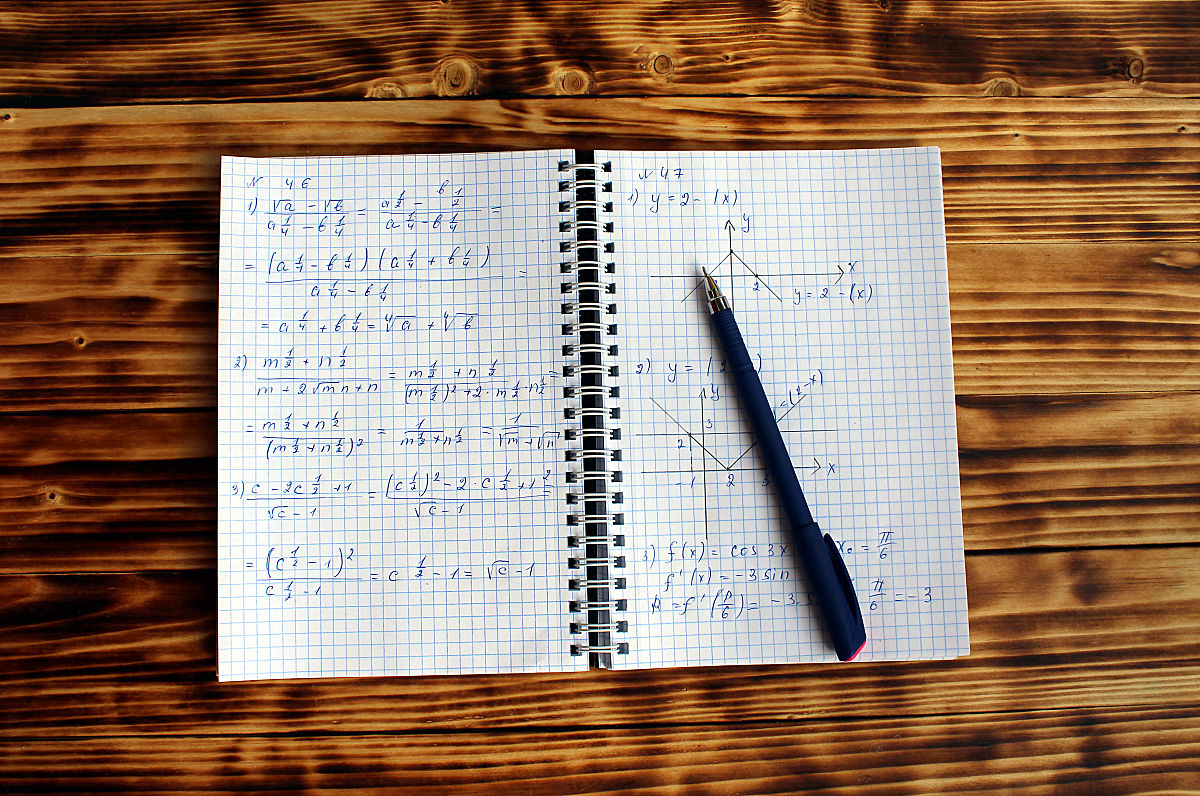 N 46
1) (√a - √b)/(a^1/4 - b^1/4) = (a^1/2 - b^1/2)/(a^1/4 - b^1/4) =
= ((a^1/4 - b^1/4)(a^1/4 + b^1/4))/(a^1/4 - b^1/4) =
= a^1/4 + b^1/4 = ⁴√a + ⁴√b
2) (m^1/2 + n^1/2)/(m + 2√mn + n) = (m^1/2 + n^1/2)/((m^1/2)² + 2·m^1/2·n^1/2 =
= (m^1/2 + n^1/2)/(m^1/2 + n^1/2)² = 1/(m^1/2 + n^1/2) = 1/(√m + √n)
3) (c - 2c^1/2 + 1)/(√c - 1) = ((c^1/2)² - 2·c^1/2 + 1²)/(√c - 1) =
= (c^1/2 - 1)²/(c^1/2 - 1) = c^1/2 - 1 = √c - 1
N 47
1) y = 2 - (x)
y
x
2
y = 2 - (x)
2) y = (2
y
=(2-x)
3
2
x
-1
2
3) f(x) = cos 3x x₀ = π/6
f'(x) = -3 sin
k = f'(π/6) = -3 π/6 = -3